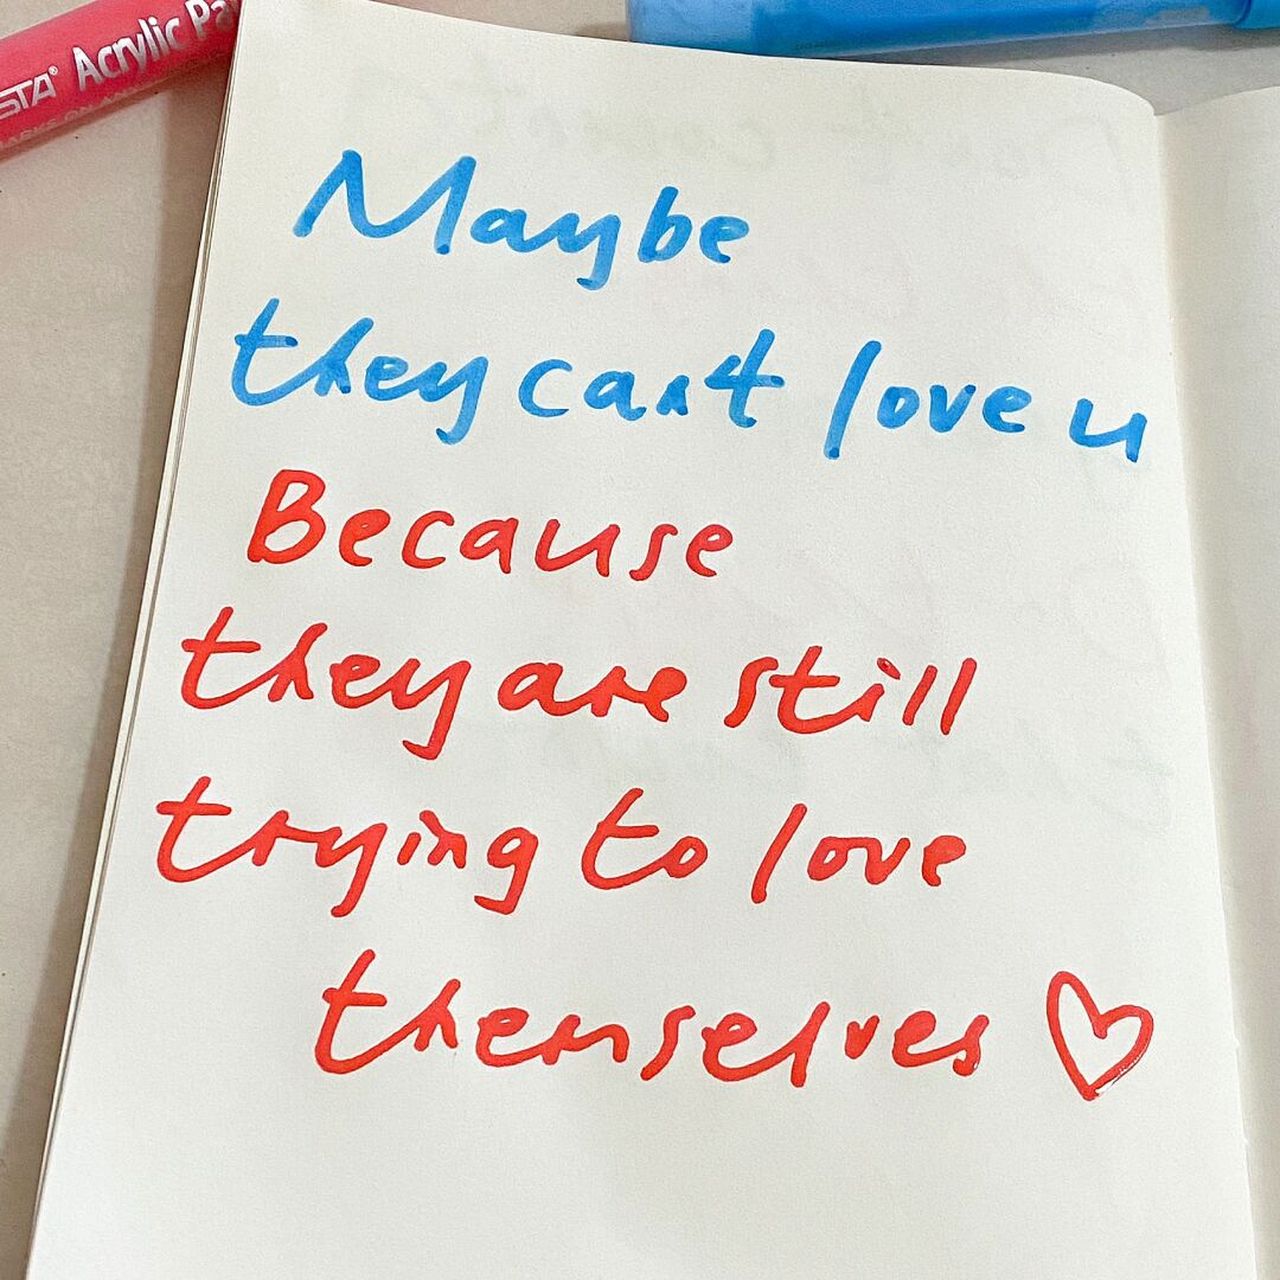 STA® Acrylic Pa
Maybe
they cant love u
Because
they are still
trying to love
themselves